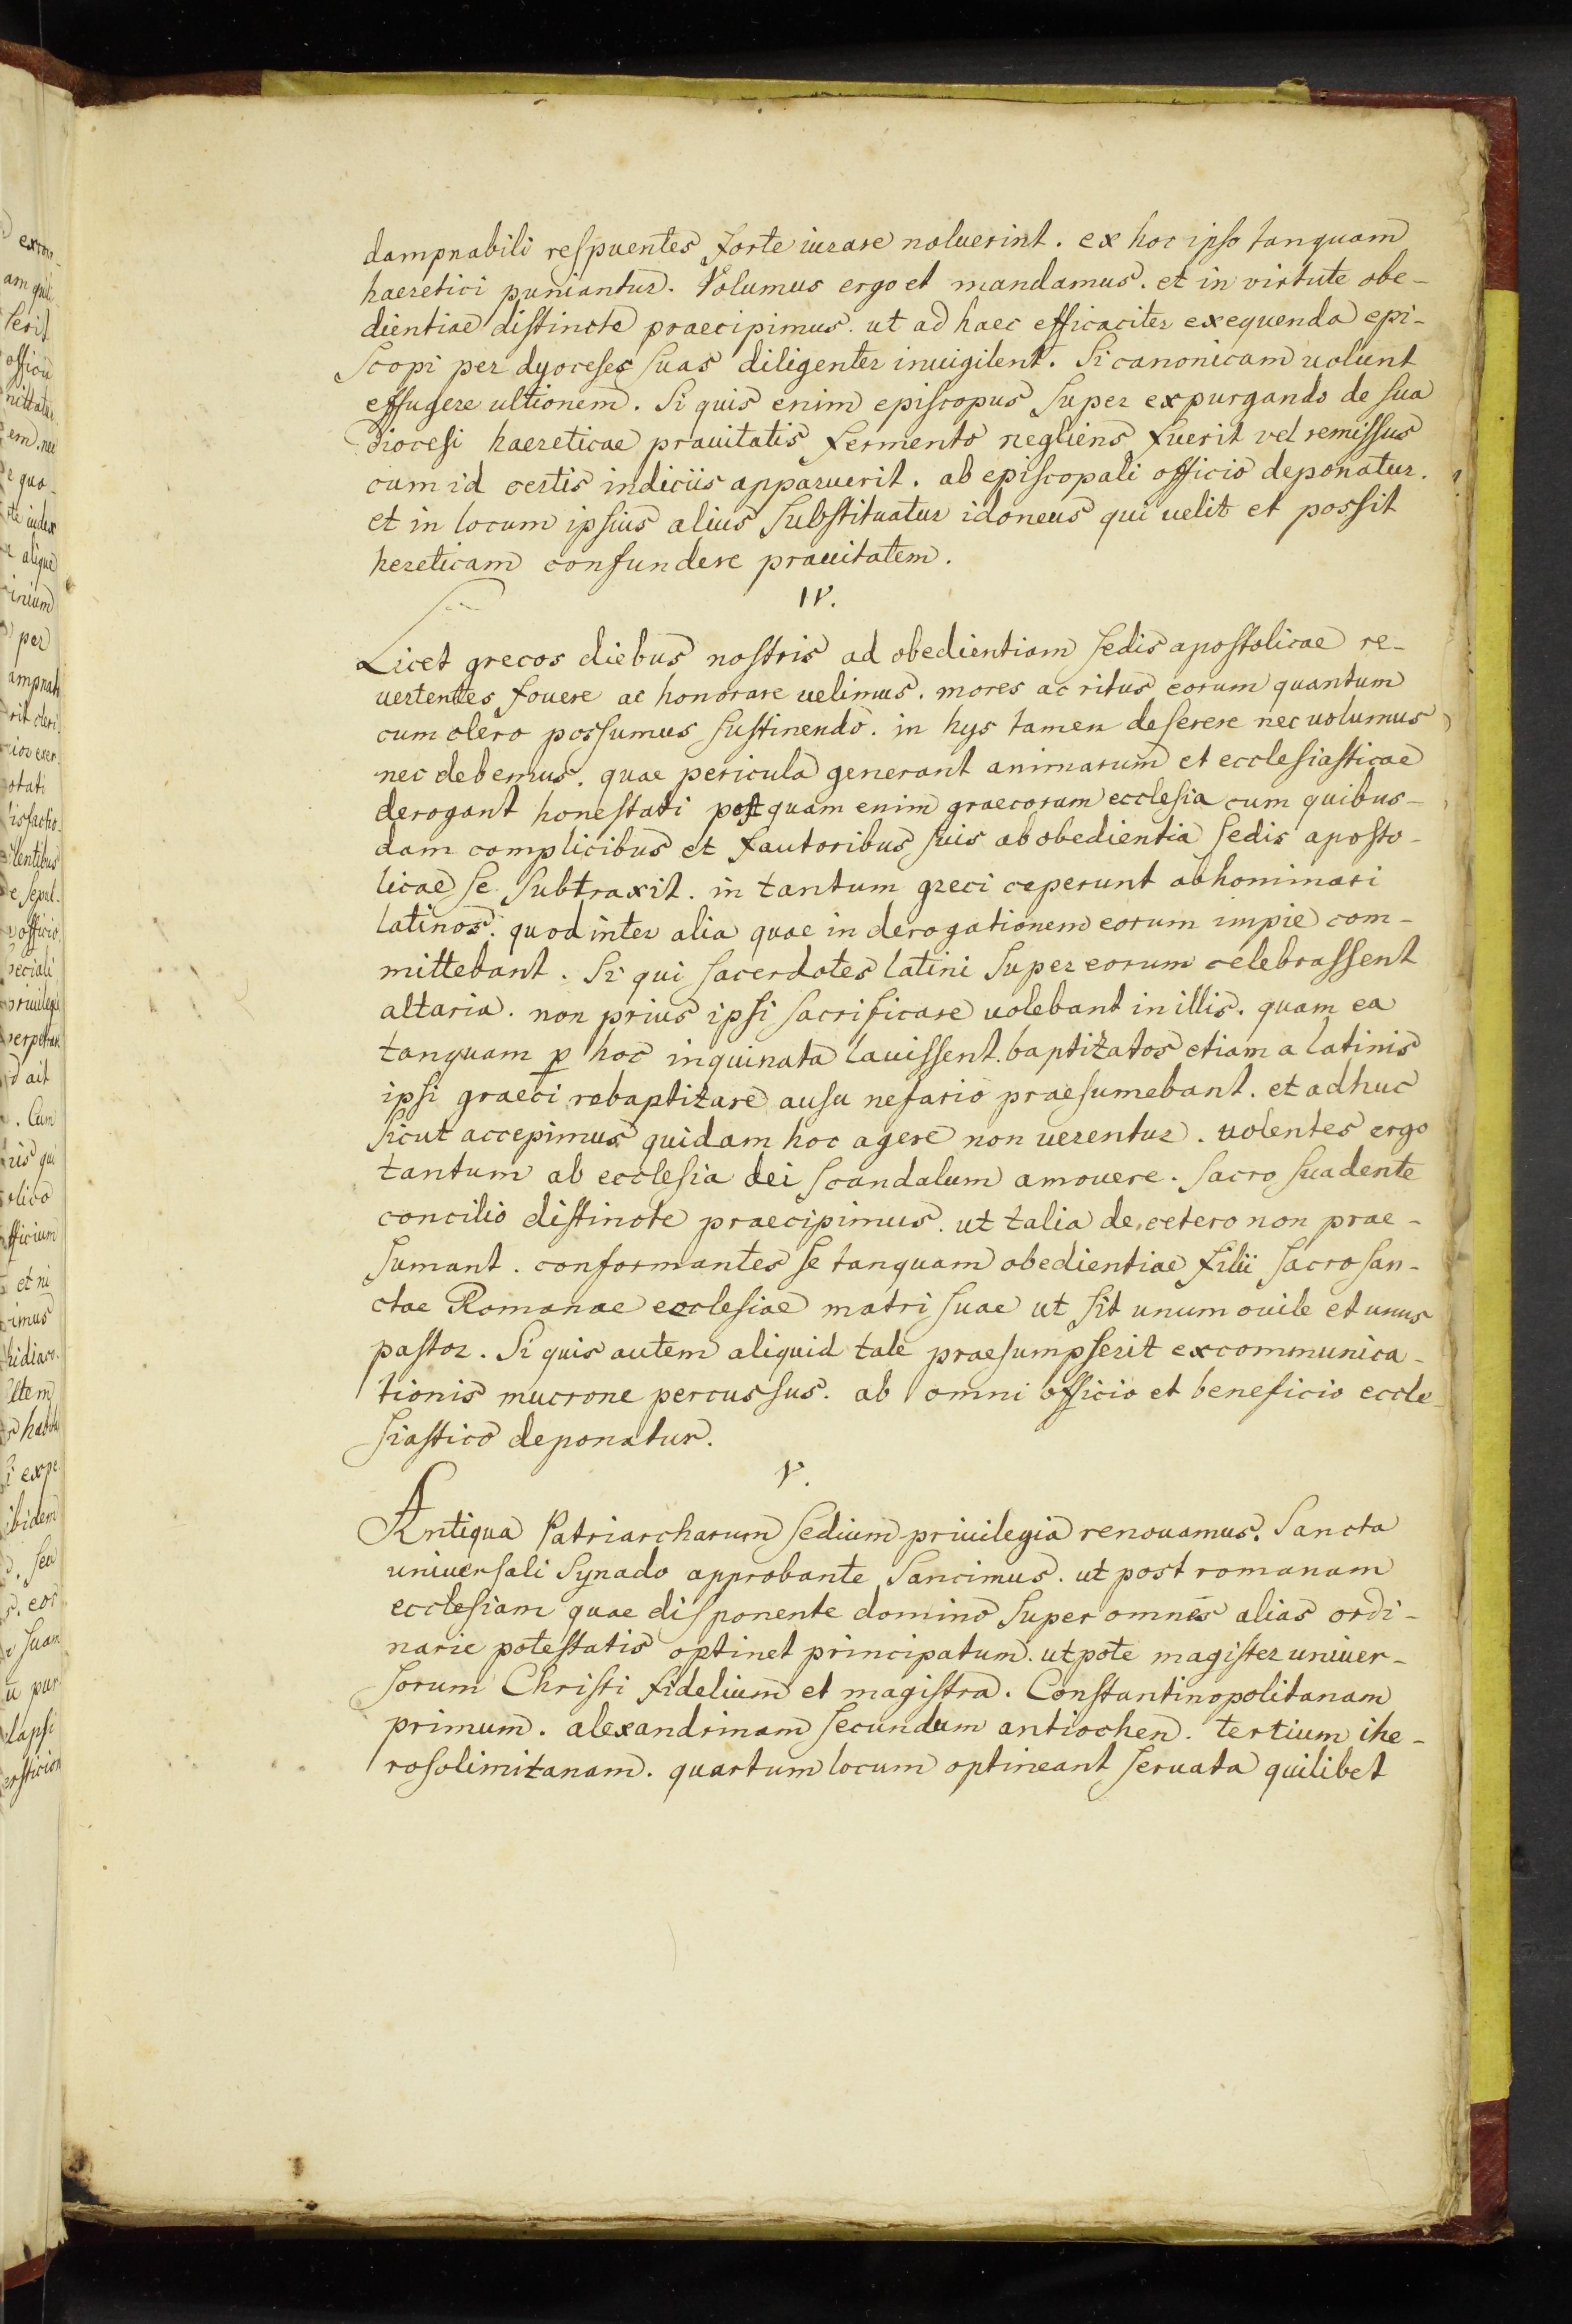 dampnabili respuentes forte iurare noluerint. ex hoc ipso tanquam
haeretici puniantur. Volumus ergo et mandamus. et in virtute obe-
dientiae distincte praecipimus. ut ad haec efficaciter exequenda epi-
scopi per dyoceses suas diligenter inuigilent. Si canonicam uolunt
effugere ultionem. Si quis enim episcopus super expurgando de sua
diocesi haereticae prauitatis fermento negliens fuerit vel remissus
cum id certis indiciis apparuerit. ab episcopali officio deponatur.
et in locum ipsius alius substituatur idoneus qui uelit et possit
hereticam confundere prauitatem.
IV.
Licet grecos diebus nostris ad obedientiam sedis apostolicae re-
uertentes fouere ac honorare uelimus. mores ac ritus eorum quantum
cum olero possumus sustinendo. in hys tamen deserere nec uolumus
nec debemus. quae pericula generant animarum et ecclesiasticae
derogant honestati postquam enim graecorum ecclesia cum quibus-
dam complicibus et fautoribus suis ab obedientia sedis aposto-
licae se subtraxit. in tantum greci ceperunt abhominari
latinos. quod inter alia quae in derogationem eorum impie com-
mittebant. Si qui sacerdotes latini super eorum celebrassent
altaria. non prius ipsi sacrificare uolebant in illis. quam ea
tanquam p hoc inquinata lauissent. baptizatos etiam a latinis
ipsi graeci rebaptizare ausu nefario praesumebant. et adhuc
sicut accepimus quidam hoc agere non uerentur. uolentes ergo
tantum ab ecclesia dei scandalum amouere. sacro suadente
concilio distincte praecipimus. ut talia de cetero non prae-
sumant. conformantes se tanquam obedientiae filii sacrosan-
ctae Romanae ecclesiae matri suae ut sit unum ouile et unus
pastor. Si quis autem aliquid tale praesumpserit excommunica-
tionis mucrone percussus. ab omni officio et beneficio eccle-
siastico deponatur.
V.
Antiqua Patriarcharum sedium priuilegia renouamus. Sancta
uniuersali Synado approbante sancimus. ut post romanam
ecclesiam quae disponente domino super omnes alias ordi-
narie potestatis optinet principatum. utpote magister uniuer-
sorum Christi fidelium et magistra. Constantinopolitanam
primum. alexandrinam secundum antiochen. tertium ihe-
rosolimitanam. quartum locum optineant seruata quilibet